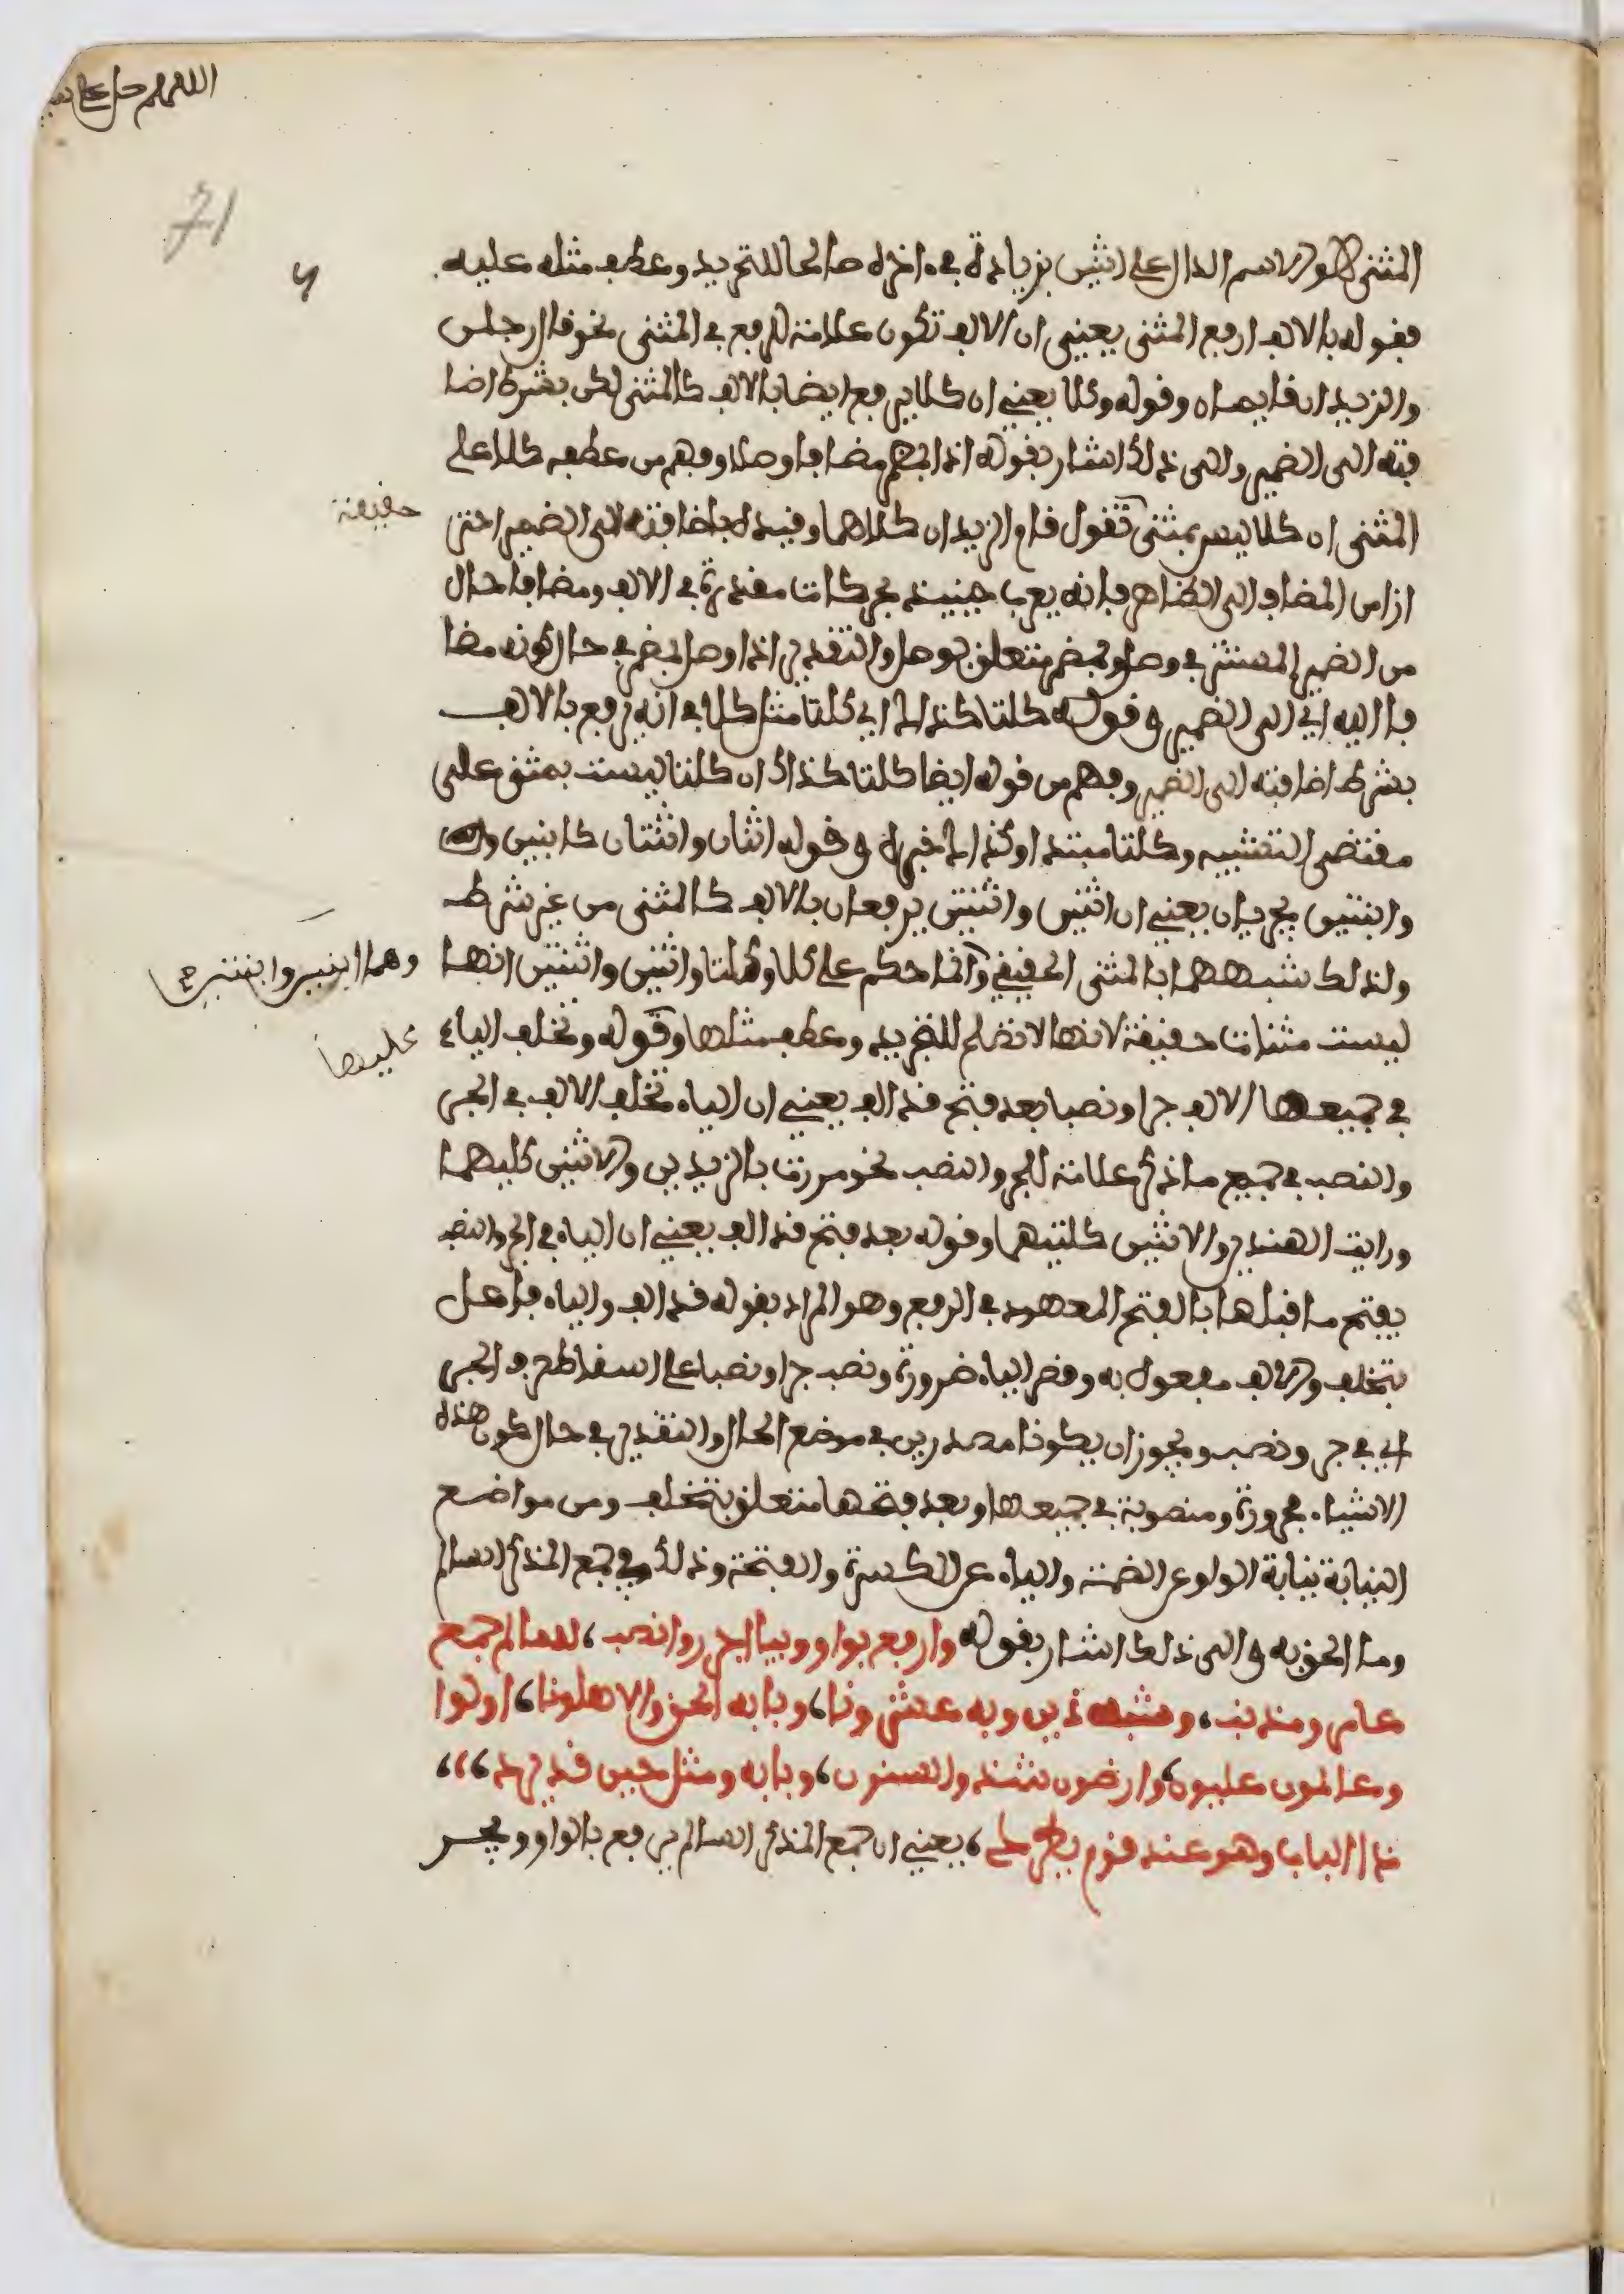 اللهم صل على
71
المثنى هو الاسم الدال على اثنين بزيادة في ءاخره صالحا للتجريد وعطف مثله عليه
فقوله بالالف ارفع المثنى يعني ان الالف تكون علامة للرفع في المثنى نحو قال رجلن
والزيدان قايمان وقوله وكلا يعني ان كلا يرفع ايضا بالالف كالمثنى لكن بشرط اضا
فته الى الضمير والى ذلك اشار بقوله اذا بمضمر مضافا وصلا وفهم من عطف كلا على
المثنى ان كلا ليس بمثنى حقيقة تقول قام الزيدان كلاهما وقيده باضافته الى الضمير احتر
ازا من المضاف الى الظاهر فانه يعرب حينيذ بحركات مقدرة في الالف ومضافا حال
من الضمير المستتر في وصل وبمضمر متعلق بوصل والتقدير اذا وصل بمضمر في حال كونه مضا
فا اليه اي الى الضمير وقوله كلتا كذاك اي كلتا مثل كلا في انه يرفع بالالف
بشرط اضافته الى الضمير وفهم من قوله ايضا كلتا كذاك ان كلتا ليست بمثنى على
مقتضى التشبيه وكلتا مبتدا وكذاك خبره وقوله اثنان واثنتان كابنين
وابنتين يجريان يعني ان اثنين واثنتين يرفعان بالالف كالمثنى من غير شرط
ولذلك شبههما بالمثنى الحقيقي وهما ابنين وابنتين وانما حكم على كلا وكلتا واثنين واثنتين انها
ليست مثنات حقيقة لانها لا تصلح للتجريد وعطف مثلها عليها وقوله وتخلف الياء
في جميعها الالف جرا ونصبا بعد فتح قد الف يعني ان الياء تخلف الالف في الجر
والنصب في جميع ما ذكر علامة للجر والنصب نحو مررت بالزيدين والاثنين كليهما
ورايت الهندين والاثنين كلتيهما وقوله بعد فتح قد الف يعني ان الياء في الجر والنصب
يفتح ما قبلها بالفتح المعهود في الرفع وهو المراد بقوله قد الف والياء فاعل
بتخلف والالف مفعول به وقصر الياء ضرورة ونصب جرا ونصبا على اسقاط حرف الجر
اي في جر ونصب ويجوز ان يكونا مصدرين في موضع الحال والتقدير في حال كون هذه
الاشياء مجرورة ومنصوبة في جميعها وبعد فتحها متعلق بتخلف ومن مواضع
النيابة نيابة الواو عن الضمة والياء عن الكسرة والفتحة وذلك في جمع المذكر السالم
وما الحق به والى ذلك اشار بقوله وارفع بواو وبيا اجرر وانصب، لسالم جمع
عامر ومذنب، وشبه ذين وبه عشرونا، وبابه الحق والاهلونا، اولوا
وعالمون عليون، وارضون شذ والسنون، وبابه ومثل حين قد يرد،،،
ذا الباب وهو عند قوم يطرد، يعني ان جمع المذكر السالم يرفع بالواو ويجر